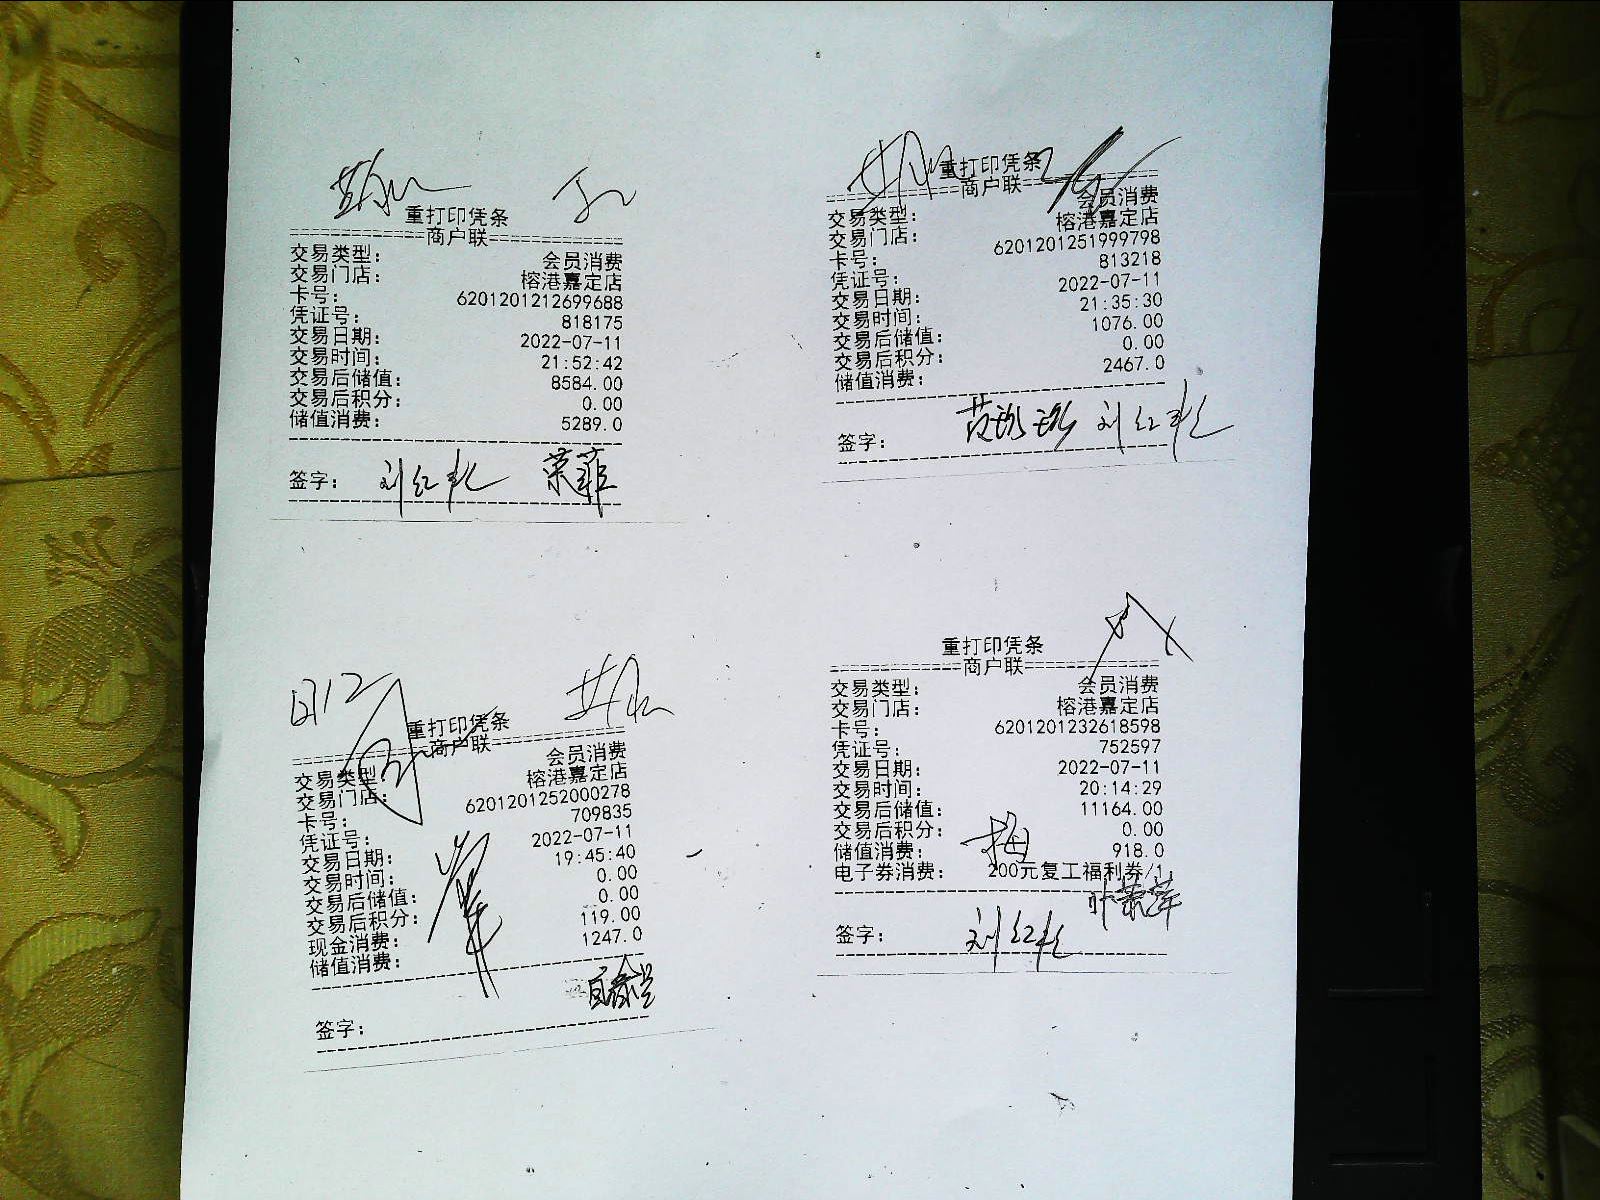 重打印凭条
商户联
交易类型： 会员消费
交易门店： 榕港嘉定店
卡号： 6201201212699688
凭证号： 818175
交易日期： 2022-07-11
交易时间： 21:52:42
交易后储值： 8584.00
交易后积分： 0.00
储值消费： 5289.0
签字： 刘红彪 荣菲
重打印凭条
商户联
交易类型： 会员消费
交易门店： 榕港嘉定店
卡号： 6201201251999798
凭证号： 813218
交易日期： 2022-07-11
交易时间： 21:35:30
交易后储值： 1076.00
交易后积分： 0.00
储值消费： 2467.0
签字：
重打印凭条
商户联
交易类型： 会员消费
交易门店： 榕港嘉定店
卡号： 6201201252000278
凭证号： 709835
交易日期： 2022-07-11
交易时间： 19:45:40
交易后储值： 0.00
交易后积分： 0.00
现金消费： 119.00
储值消费： 1247.0
签字：
重打印凭条
商户联
交易类型： 会员消费
交易门店： 榕港嘉定店
卡号： 6201201232618598
凭证号： 752597
交易日期： 2022-07-11
交易时间： 20:14:29
交易后储值： 11164.00
交易后积分： 0.00
储值消费： 918.0
电子券消费： 200元复工福利券/1
梅
签字：